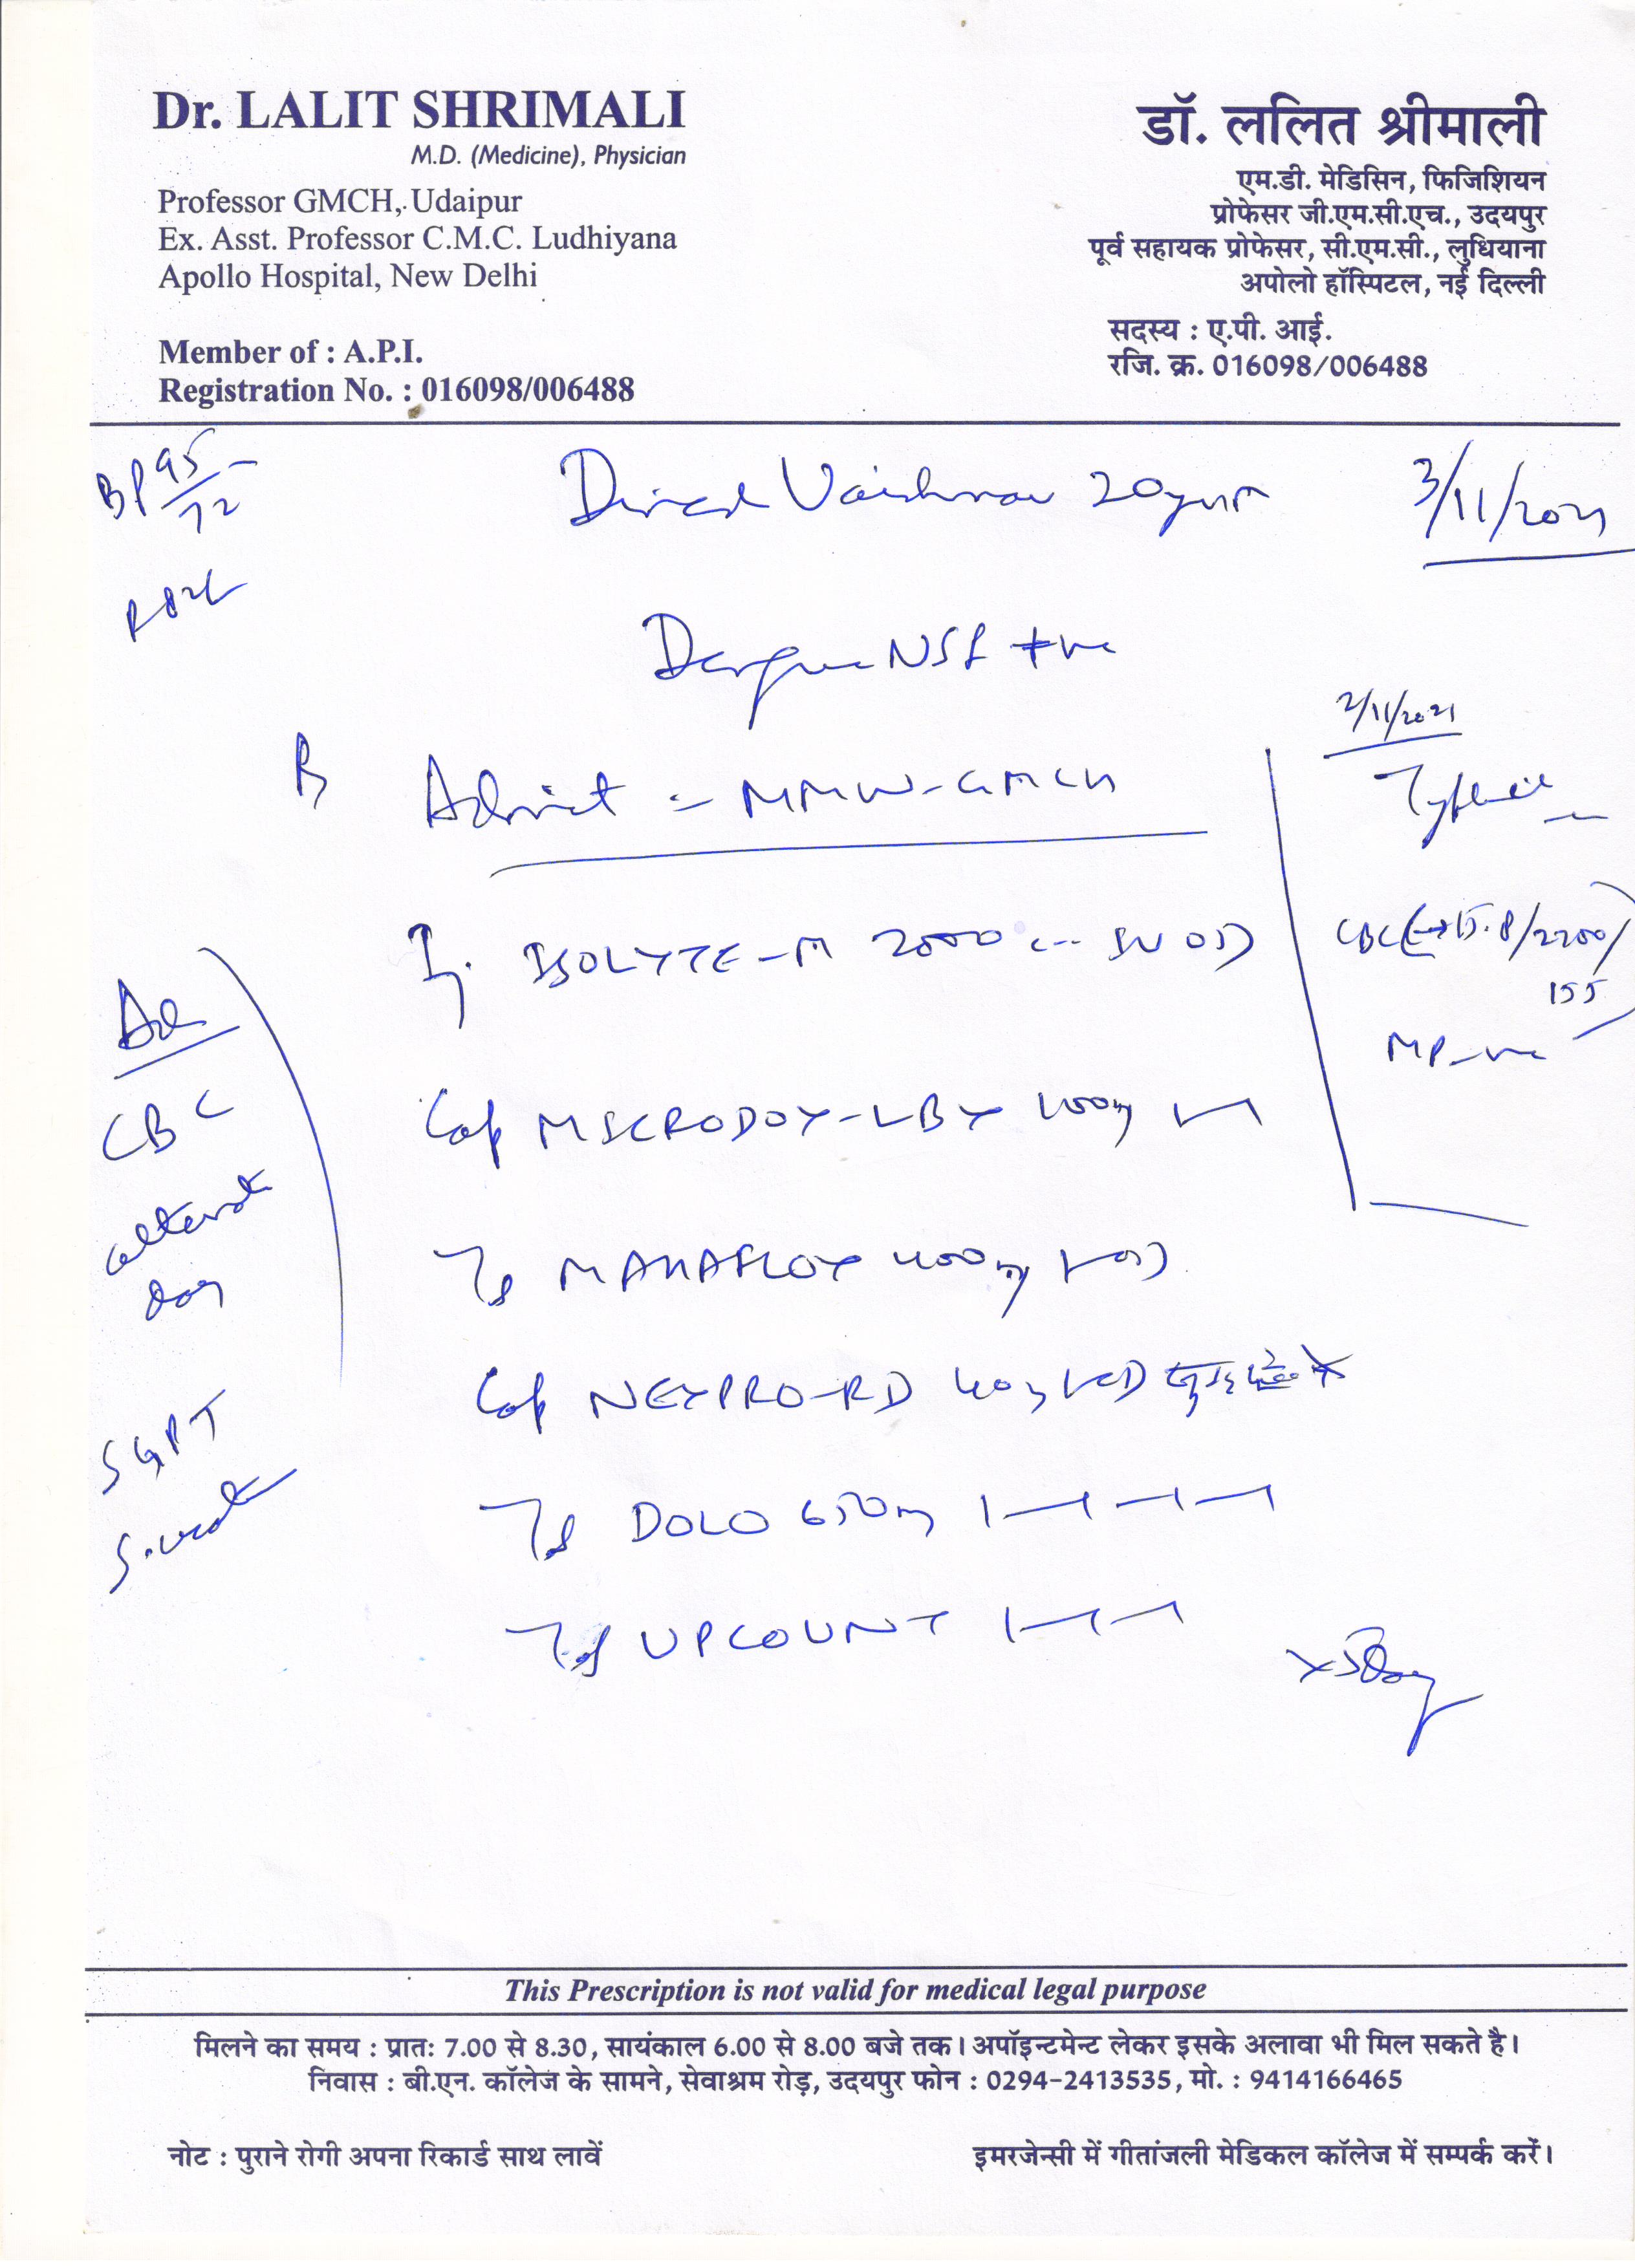 Dr. LALIT SHRIMALI
M.D. (Medicine), Physician
Professor GMCH, Udaipur
Ex. Asst. Professor C.M.C. Ludhiyana
Apollo Hospital, New Delhi
Member of : A.P.I.
Registration No. : 016098/006488
डॉ. ललित श्रीमाली
एम.डी. मेडिसिन, फिजिशियन
प्रोफेसर जी.एम.सी.एच., उदयपुर
पूर्व सहायक प्रोफेसर, सी.एम.सी., लुधियाना
अपोलो हॉस्पिटल, नई दिल्ली
सदस्य : ए.पी. आई.
रजि. क्र. 016098/006488
BP 95/72
Vaishnav 20 years
3/11/2021
Dengue NS1 +ve
Admit - MMW-GMCH
2/11/2021
CBC (→15.8/2200/
155)
MP -ve
ISOLYTE-M 2000 IV OD
Cap MICRODOX-LBX 100mg
Tab MAHAFLOX 400mg 1 OD
Cap NEXPRO-RD 40mg 1 OD
Tab DOLO 650mg 1-1-1-1
Tab UPCOUNT 1-1-1
x 5 Day
Adv
CBC
alternate
day
SGPT
This Prescription is not valid for medical legal purpose
मिलने का समय : प्रातः 7.00 से 8.30, सायंकाल 6.00 से 8.00 बजे तक। अपॉइन्टमेन्ट लेकर इसके अलावा भी मिल सकते है।
निवास : बी.एन. कॉलेज के सामने, सेवाश्रम रोड़, उदयपुर फोन : 0294-2413535, मो. : 9414166465
नोट : पुराने रोगी अपना रिकार्ड साथ लावें
इमरजेन्सी में गीतांजली मेडिकल कॉलेज में सम्पर्क करें।